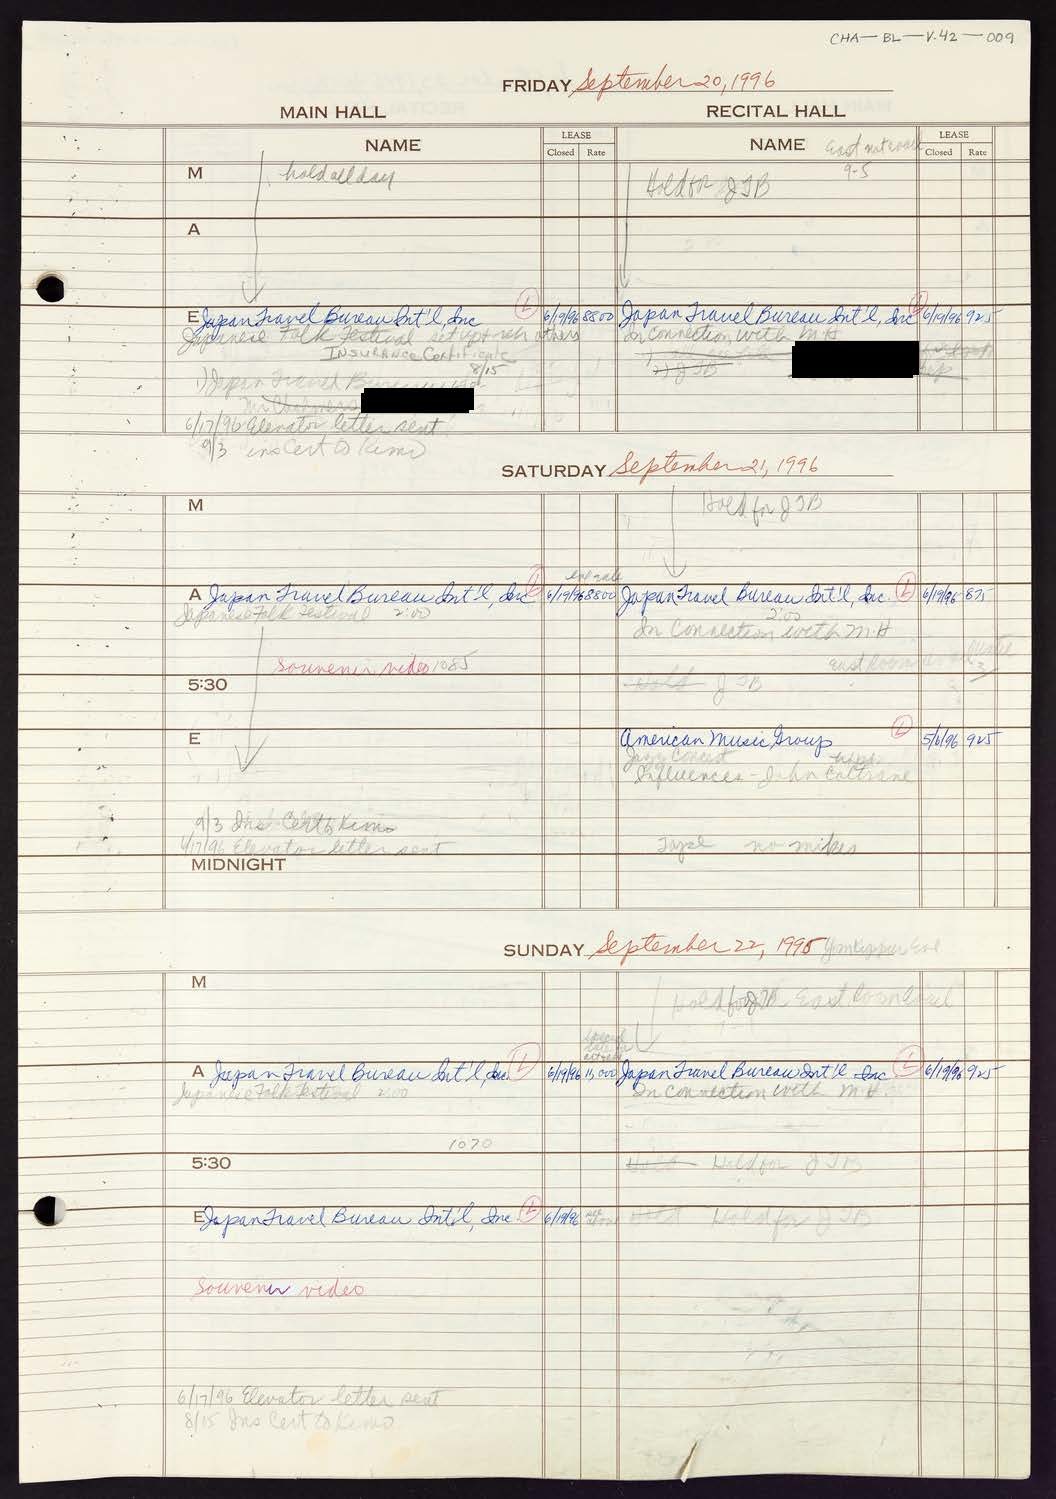 CHA—BL—V.42—009
FRIDAY September 20, 1996
MAIN HALL
RECITAL HALL
NAME
LEASE
Closed
Rate
NAME
LEASE
Closed
Rate
9-5
M
hold all day
Hold for JTB
A
E Japan Travel Bureau Int'l, Inc L 6/19/96 8800
Japanese Folk Festival set up + reh others
INSURANCE Certificate
8/15
1) Japan Travel Bureau
6/17/96 Elevator letter sent
9/3 ins Cert to Kimo
Japan Travel Bureau Int'l, Inc L 6/19/96 925
In Connection with M H
2) JTB
SATURDAY September 21, 1996
M
Hold for JTB
A Japan Travel Bureau Int'l, Inc L 6/19/96 8800
Japanese Folk Festival 2:00
Souvenir video 1085
Japan Travel Bureau Int'l, Inc. L 6/19/96 875
2:00
In Connection with M.H
East Room
5:30
Hold JTB
E
American Music Group L 5/6/96 925
Jazz Concert
Influences - John Coltrane
9/3 Ins Cert to Kimo
6/17/96 Elevator letter sent
Tape no mikes
MIDNIGHT
SUNDAY September 22, 1996 Yom Kippur Eve
M
Hold for JTB East Room
A Japan Travel Bureau Int'l, Inc. L 6/19/96 11,000
Japanese Folk Festival 2:00
1070
Japan Travel Bureau Int'l Inc L 6/19/96 925
In Connection with M.H.
5:30
Hold Hold for JTB
E Japan Travel Bureau Int'l, Inc. L 6/19/96
Hold Hold for JTB
Souvenir video
6/17/96 Elevator letter sent
8/15 Ins Cert to Kimo